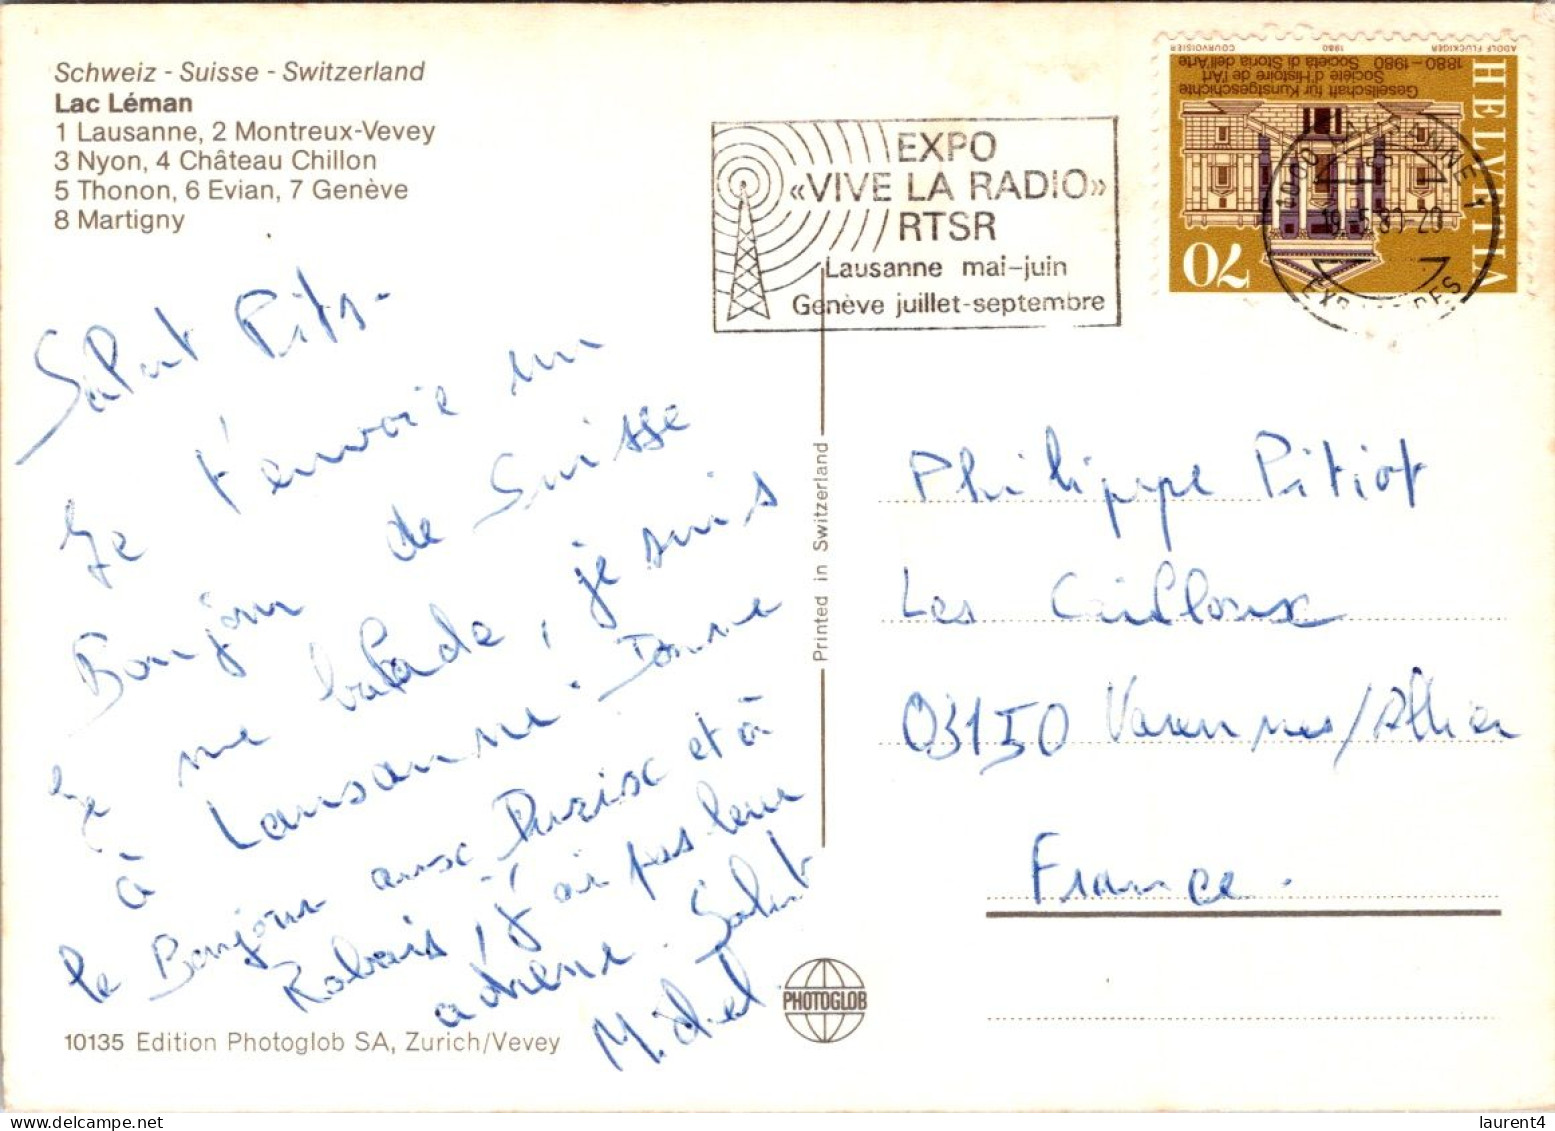 Schweiz - Suisse - Switzerland
Lac Léman
1 Lausanne, 2 Montreux-Vevey
3 Nyon, 4 Château Chillon
5 Thonon, 6 Evian, 7 Genève
8 Martigny
EXPO
«VIVE LA RADIO»
RTSR
Lausanne mai-juin
Genève juillet-septembre
HELVETIA
70
Gesellschaft für Kunstgeschichte
Société d'Histoire de l'Art
Società di Storia dell'Arte
1880-1980
ADOLF FLÜCKIGER
1980
COURVOISIER
1000 LAUSANNE 1
Salut Pits -
Je t'envoie un
Bonjour de Suisse
Je me balade, je suis
à Lausanne. Donne
le Bonjour aux et à
Rabais, j'ai pas leur
adresse. Salut
Michel
Printed in Switzerland
Philippe Pitiot
Les Cailloux
03150 Varennes/Allier
France.
PHOTOGLOB
10135 Edition Photoglob SA, Zurich/Vevey
laurent4